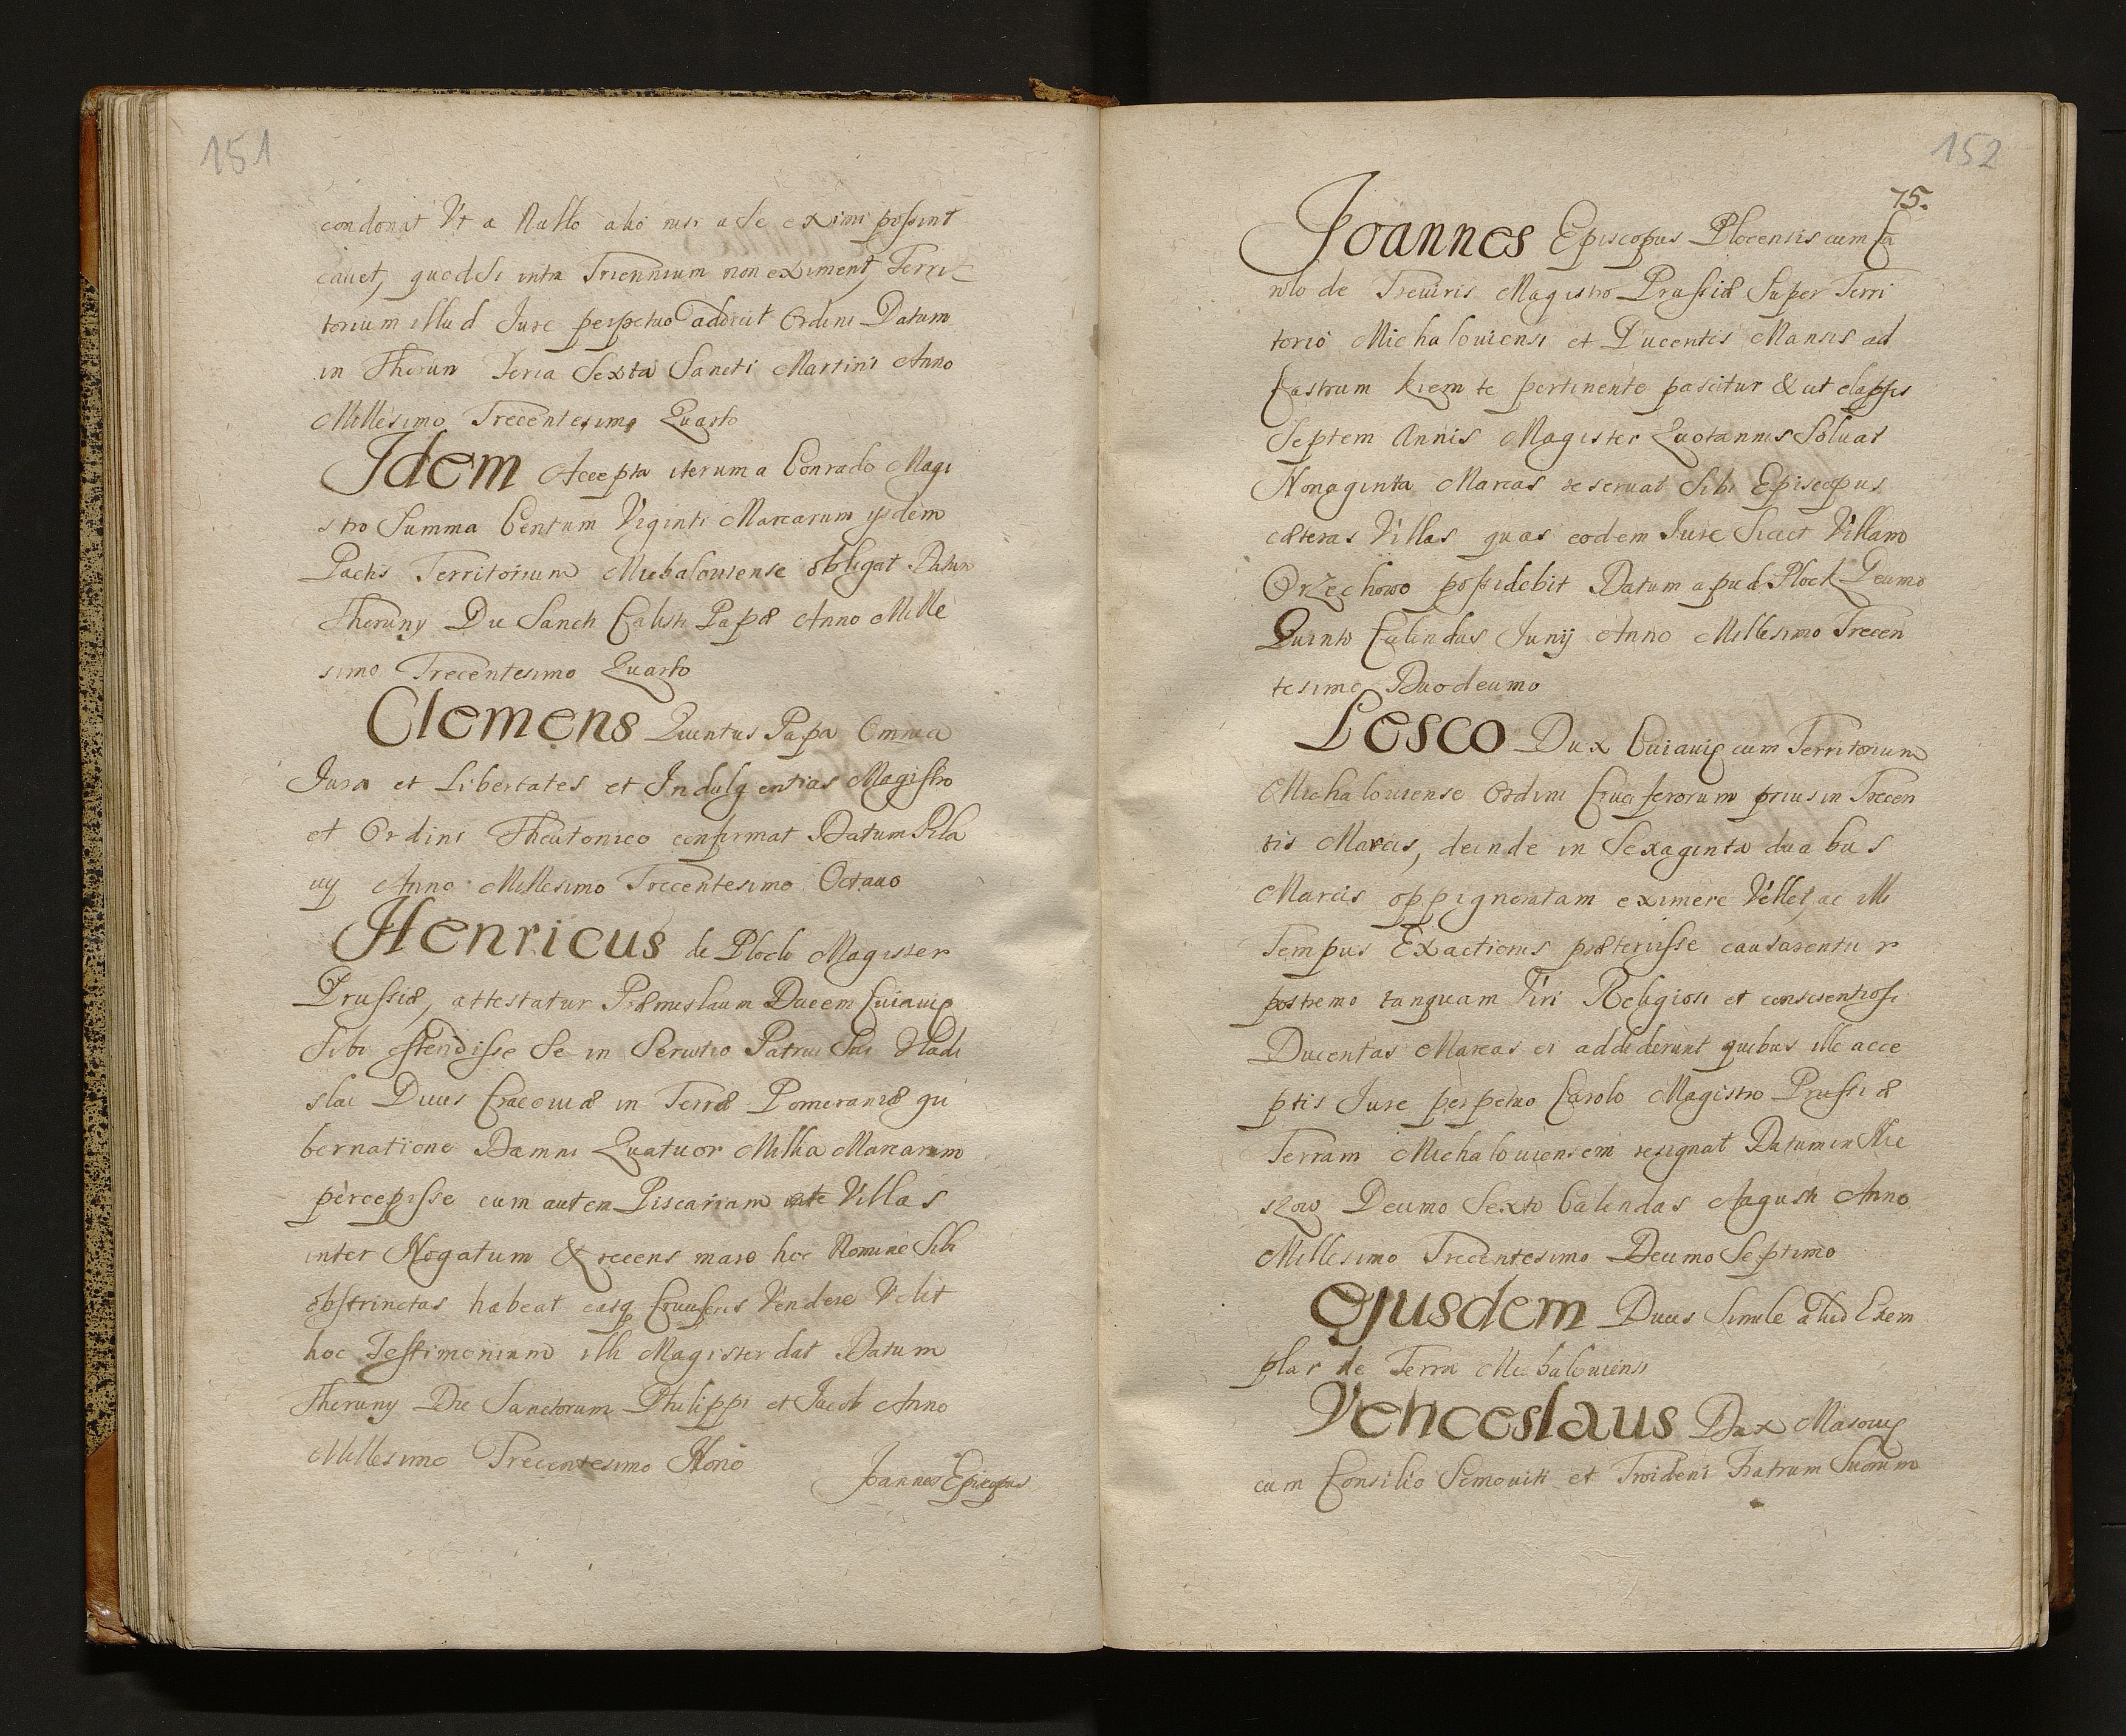 151
condonat Vt a Nullo alio nisi a Se eximi possint
cauet, quodsi intra Triennium non eximent, Territ
torium illud Jure perpetuo addicit Ordini Datum
in Thorun Feria Sexta Sancti Martini Anno
Millesimo Trecentesimo Quarto
Idem Accepta iterum a Conrado Magi
stro Summa Centum Viginti Marcarum ijsdem
Pactis Territorium Michalouiense obligat Datum
Theruny Die Sancti Calisti Papæ Anno Mille
simo Trecentesimo Quarto
Clemens Quintus Papa Omnia
Jura et Libertates et Indulgentias Magistro
et Ordini Theutonico confirmat Datum Pila
uij Anno Millesimo Trecentesimo Octauo
Henricus de Plock Magister
Prussiæ, attestatur Præmislaum Ducem Cuiauię
Sibi ostendisse Se in Seruitio Patrui Sui Vladi
slai Ducis Cracouiæ in Terræ Pomeraniæ gu
bernatione Damni Quatuor Millia Marcarum
percepisse cum autem Piscariam Villas
inter Nogatum & recens mare hoc Nomine Sibi
obstrinctas habeat easq Cruciferis Vendere Velit
hoc Testimonium illi Magister dat Datum
Theruny Die Sanctorum Philippi et Jacob Anno
Millesimo Trecentesimo Nono
Joannes Episcopus
152
75.
Joannes Episcopus Plocensis cum Ca
rolo de Treuiris Magistro Prussiæ Super Terri
torio Michalouiensi et Ducentis Mansis ad
Castrum pertinente pascitur & ut elapsis
Septem Annis Magister Quotannis Soluat
Nonaginta Marcas reseruat Sibi Episcopus
cæteras Villas quas eodem Jure Sicut Villam
Orzechowo possidebit Datum apud Plock Decimo
Quinto Calendas Junij Anno Millesimo Trecen
tesimo Duodecimo
Lesco Dux Cuiauię cum Territorium
Michalouiense Ordini Cruciferorum prius in Trecen
tis Marcis, deinde in Sexaginta duabus
Marcis oppignoratam eximere Vellet, ac illi
Tempus Exactionis præteriisse causarentur
postremo tanquam Viri Religiosi et conscientiosi
Ducentas Marcas ei addiderunt quibus ille acce
ptis Jure perpetuo Carolo Magistro Prussiæ
Terram Michalouiensem resignat Datum in Mie
szow Decimo Sexto Calendas Augusti Anno
Millesimo Trecentesimo Decimo Septimo
Ejusdem Ducis Simile aliud Exem
plar de Terra Michalouiensi
Venceslaus Dux Masouię
cum Consilio Semouiti et Troideni Fratrum Suorum